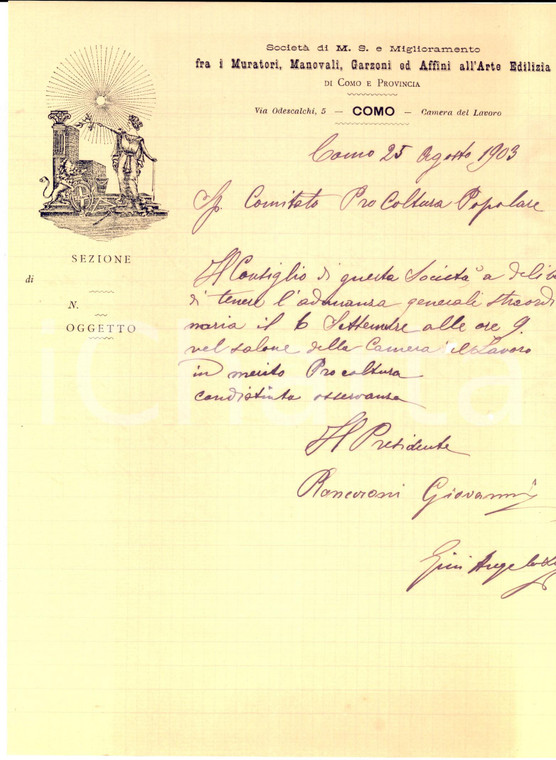 Società di M. S. e Miglioramento
fra i Muratori, Manovali, Garzoni ed Affini all'Arte Edilizia
DI COMO E PROVINCIA
Via Odescalchi, 5 — COMO — Camera del Lavoro
Como 25 Agosto 1903
Sp. Comitato Pro Coltura Popolare
SEZIONE
di
N.
OGGETTO
Il Consiglio di questa Società a delib
di tenere l'adunanza generali straordi
naria il 6 Settembre alle ore 9.
nel salone della Camera del Lavoro
in merito Procoltura
condistinta osservanza
Il Presidente
Giovanni
Angelo
iCharta